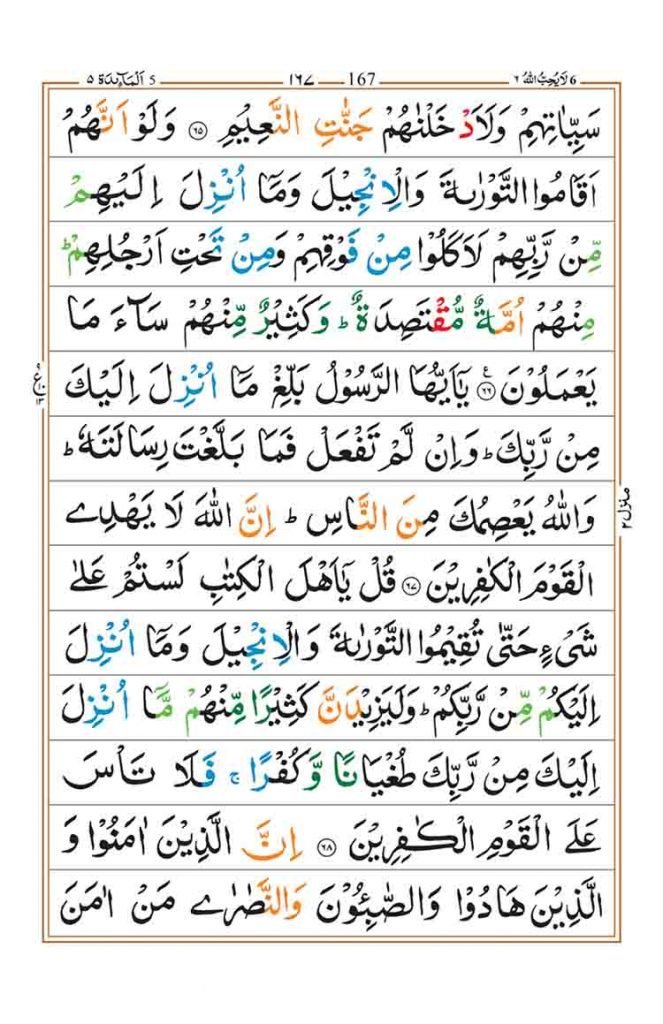 ٦ لَا يُحِبُّ اللّٰهُ 6 167 ١٦٧ 5 اَلْمَآئِدَة ٥
سَيِّاٰتِهِمْ وَلَاَدْخَلْنٰهُمْ جَنّٰتِ النَّعِيْمِ ٦٥ وَلَوْ اَنَّهُمْ
اَقَامُوا التَّوْرٰىةَ وَالْاِنْجِيْلَ وَمَآ اُنْزِلَ اِلَيْهِمْ
مِّنْ رَّبِّهِمْ لَاَكَلُوْا مِنْ فَوْقِهِمْ وَمِنْ تَحْتِ اَرْجُلِهِمْؕ
مِنْهُمْ اُمَّةٌ مُّقْتَصِدَةٌؕ وَكَثِيْرٌ مِّنْهُمْ سَآءَ مَا
يَعْمَلُوْنَ ٦٦ يٰۤاَيُّهَا الرَّسُوْلُ بَلِّغْ مَآ اُنْزِلَ اِلَيْكَ
مِنْ رَّبِّكَؕ وَاِنْ لَّمْ تَفْعَلْ فَمَا بَلَّغْتَ رِسَالَتَهٗؕ
وَاللّٰهُ يَعْصِمُكَ مِنَ النَّاسِؕ اِنَّ اللّٰهَ لَا يَهْدِى
الْقَوْمَ الْكٰفِرِيْنَ ٦٧ قُلْ يٰۤاَهْلَ الْكِتٰبِ لَسْتُمْ عَلٰى
شَىْءٍ حَتّٰى تُقِيْمُوا التَّوْرٰىةَ وَالْاِنْجِيْلَ وَمَآ اُنْزِلَ
اِلَيْكُمْ مِّنْ رَّبِّكُمْؕ وَلَيَزِيْدَنَّ كَثِيْرًا مِّنْهُمْ مَّآ اُنْزِلَ
اِلَيْكَ مِنْ رَّبِّكَ طُغْيَانًا وَّكُفْرًاۚ فَلَا تَاْسَ
عَلَى الْقَوْمِ الْكٰفِرِيْنَ ٦٨ اِنَّ الَّذِيْنَ اٰمَنُوْا وَ
الَّذِيْنَ هَادُوْا وَالصّٰبِئُوْنَ وَالنَّصٰرٰى مَنْ اٰمَنَ
منزل ٢